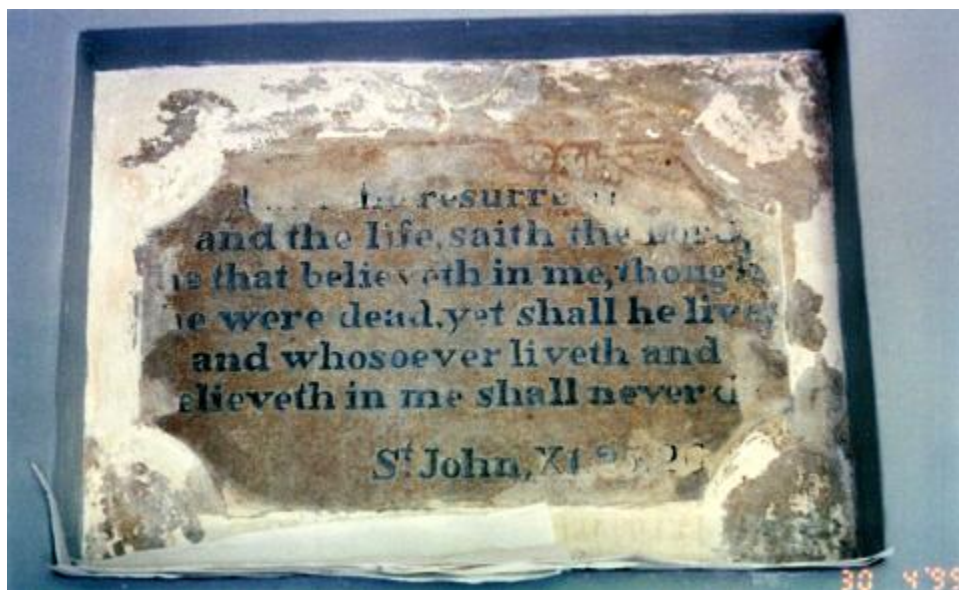 resurre
and the life, saith the Lord,
that believeth in me, though
were dead, yet shall he live,
and whosoever liveth and
elieveth in me shall never d
St John, XI. 25, 26
30 4 '99